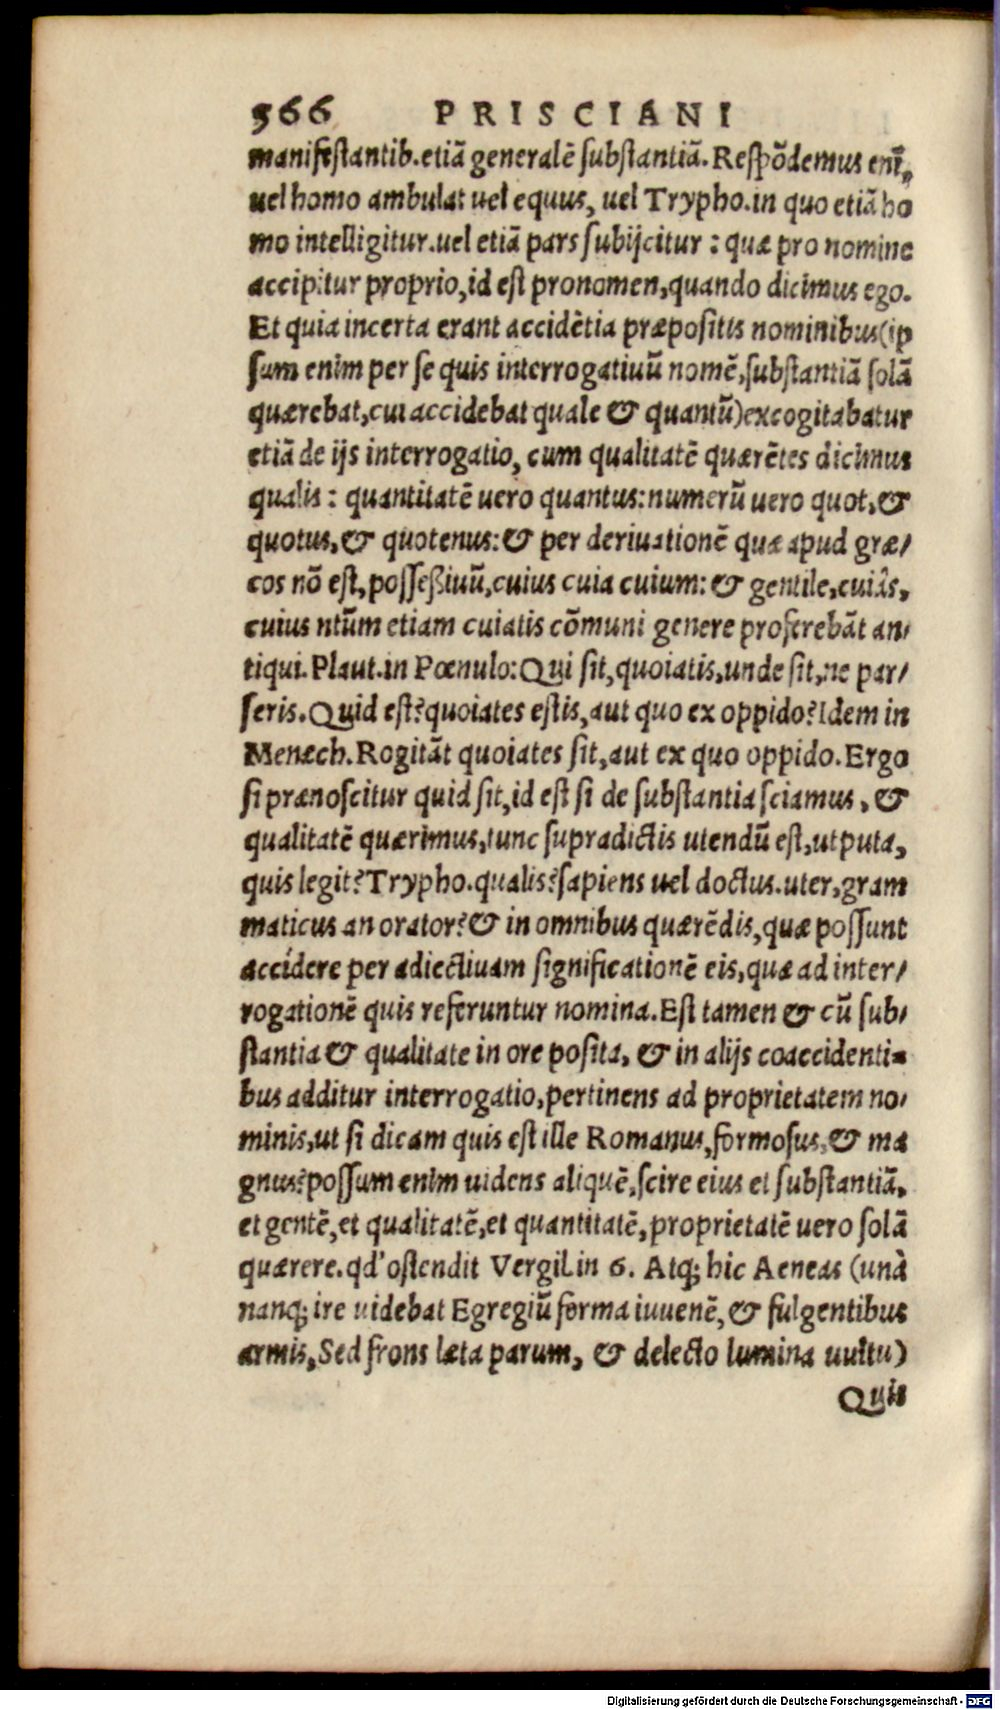 566 PRISCIANI
manifestantib.etiã generalẽ substantiã.Respõdemus eni,
uel homo ambulat uel equus, uel Trypho.in quo etiã ho
mo intelligitur.uel etiã pars subijcitur : quæ pro nomine
accipitur proprio,id est pronomen,quando dicimus ego.
Et quia incerta erant accidẽtia præpositis nominibus(ip
sum enim per se quis interrogatiuũ nomẽ,substantiã solã
quærebat,cui accidebat quale & quantũ)excogitabatur
etiã de ijs interrogatio, cum qualitatẽ quærẽtes dicimus
qualis : quantitatẽ uero quantus:numerũ uero quot,&
quotus,& quotenus:& per deriuationẽ quæ apud græ/
cos nõ est,possessiuũ,cuius cuia cuium:& gentile,cuiâs,
cuius ntũm etiam cuiatis cõmuni genere proferebãt an/
tiqui.Plaut.in Pœnulo:Qui sit,quoiatis,unde sit,ne par/
seris.Quid est?quoiates estis,aut quo ex oppido?Idem in
Menæch.Rogitãt quoiates sit,aut ex quo oppido.Ergo
si prænoscitur quid sit,id est si de substantia sciamus,&
qualitatẽ quærimus,tunc supradictis utendũ est,ut puta,
quis legit?Trypho.qualis?sapiens uel doctus.uter,gram
maticus an orator?& in omnibus quærẽdis,quæ possunt
accidere per adiectiuam significationẽ eis,quæ ad inter/
rogationẽ quis referuntur nomina.Est tamen & cũ sub/
stantia & qualitate in ore posita, & in alijs coaccidenti-
bus additur interrogatio,pertinens ad proprietatem no/
minis,ut si dicam quis est ille Romanus,formosus,& ma
gnus?possum enim uidens aliquẽ,scire eius et substantiã,
et gentẽ,et qualitatẽ,et quantitatẽ,proprietatẽ uero solã
quærere.qd' ostendit Vergil.in 6. Atq; hic Aeneas (unà
nanq; ire uidebat Egregiũ forma iuuenẽ,& fulgentibus
armis,Sed frons læta parum, & delecto lumina uultu)
Quis
Digitalisierung gefördert durch die Deutsche Forschungsgemeinschaft - DFG